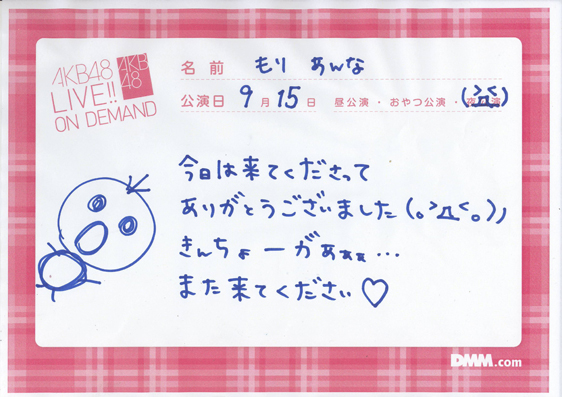 AKB48
LIVE!!
ON DEMAND
AKB
48
名前 もり あんな
公演日 9月15日 昼公演・おやつ公演・
今日は来てくださって
ありがとうございました(。>д<。)ノ
きんちょーがぁぁぁ…
また来てください♡
DMM.com